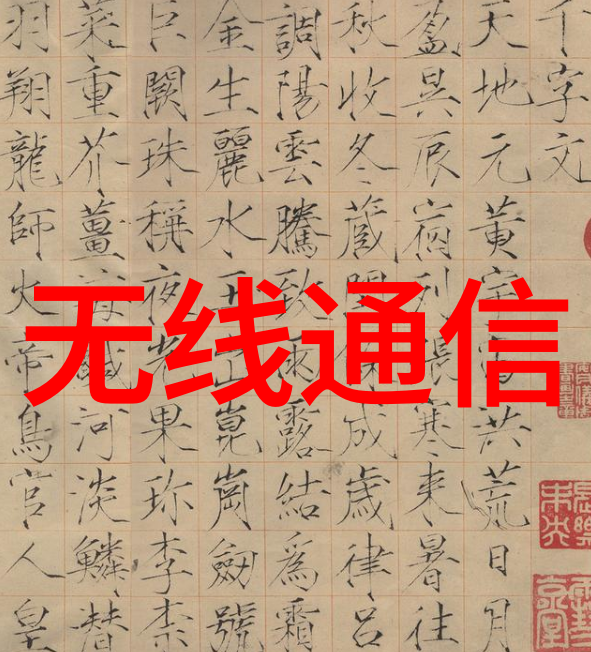 千字文
天地元黃宇宙洪荒日月
盈昃辰宿列張寒來暑往
秋收冬藏閏餘成歲律呂
調陽雲騰致雨露結為霜
金生麗水玉出崑崗劍號
巨闕珠稱夜光果珍李柰
菜重芥薑海鹹河淡鱗潛
羽翔龍師火帝鳥官人皇
无线通信